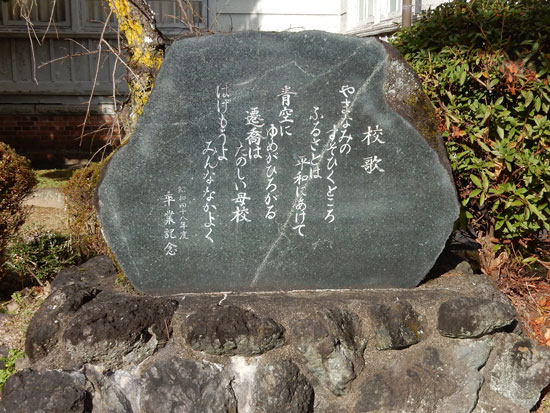 校歌
やまなみの
すそひくところ
ふるさとは
平和にあけて
青空に
ゆめがひろがる
遷喬は
たのしい母校
はげもうよ
みんななかよく
昭和四十八年度
卒業記念